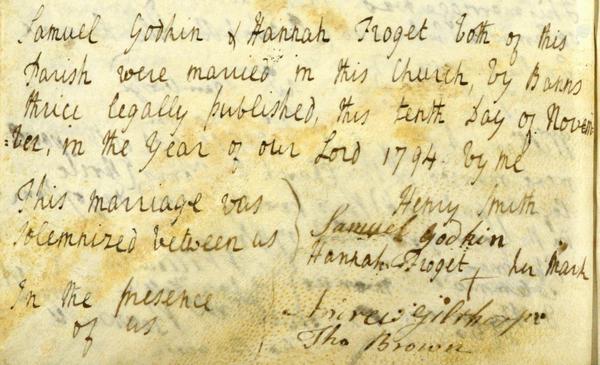 Samuel Godkin & Hannah Froget both of this
Parish were married in this Church, by Banns
thrice legally published, this tenth Day of Novem
=ber, in the Year of our Lord 1794 by me
Henry Smith
This marriage was
solemnized between us
Samuel Godkin
Hannah Froget + her mark
In the presence
of us
Andrew Gilthorpe
Tho Brown